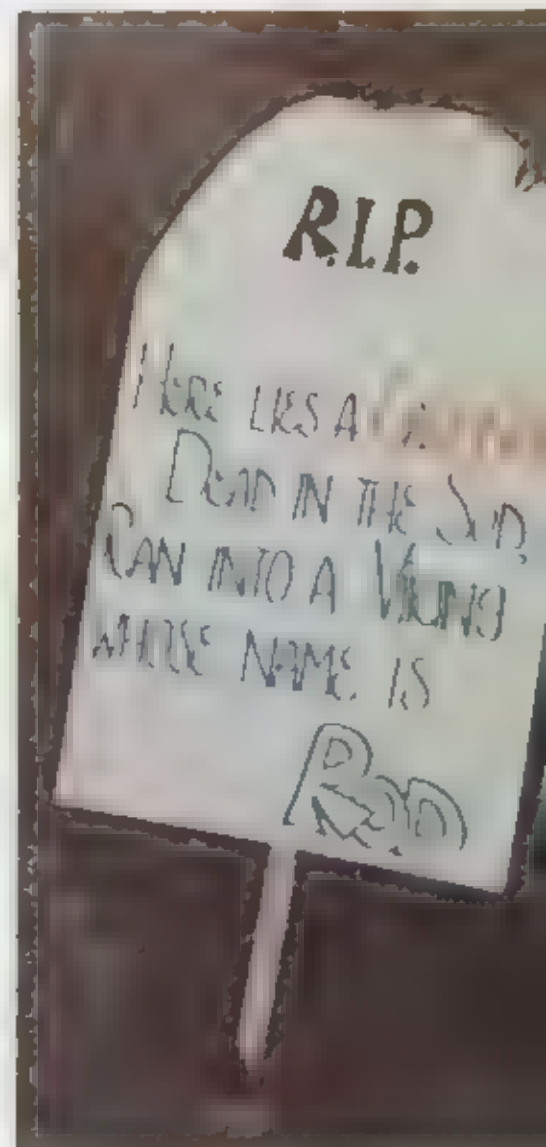 R.I.P.
HERE LIES A
DEAD IN THE
RAN INTO A VIKING
WHOSE NAME IS
ROD